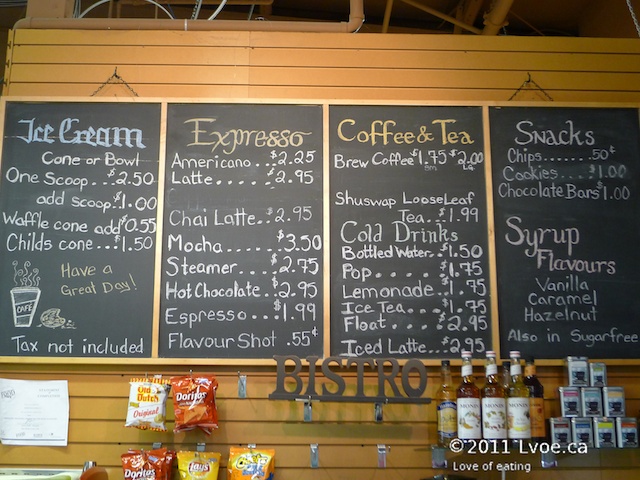 Ice Cream
Cone or Bowl
One Scoop...$2.50
add scoop $1.00
Waffle cone add $0.55
Childs cone...$1.50
Have a
Great Day!
CAFE
Tax not included
Expresso
Americano...$2.25
Latte.....$2.95
Chai Latte..$2.95
Mocha.....$3.50
Steamer....$2.75
Hot Chocolate..$2.95
Espresso....$1.99
Flavour Shot .55¢
Coffee & Tea
Brew Coffee $1.75 $2.00
Sm. LG.
Shuswap LooseLeaf
Tea...$1.99
Cold Drinks
Bottled Water..$1.50
Pop......$1.75
Lemonade..$1.75
Ice Tea....$1.75
Float.....$2.95
Iced Latte..$2.95
Snacks
Chips......50¢
Cookies....$1.00
Chocolate Bars $1.00
Syrup
Flavours
Vanilla
Caramel
Hazelnut
Also in Sugarfree
BISTRO
Old
Dutch
Original
Doritos
Doritos
Lay's
MONIN
MONIN
©2011 Lvoe.ca
Love of eating